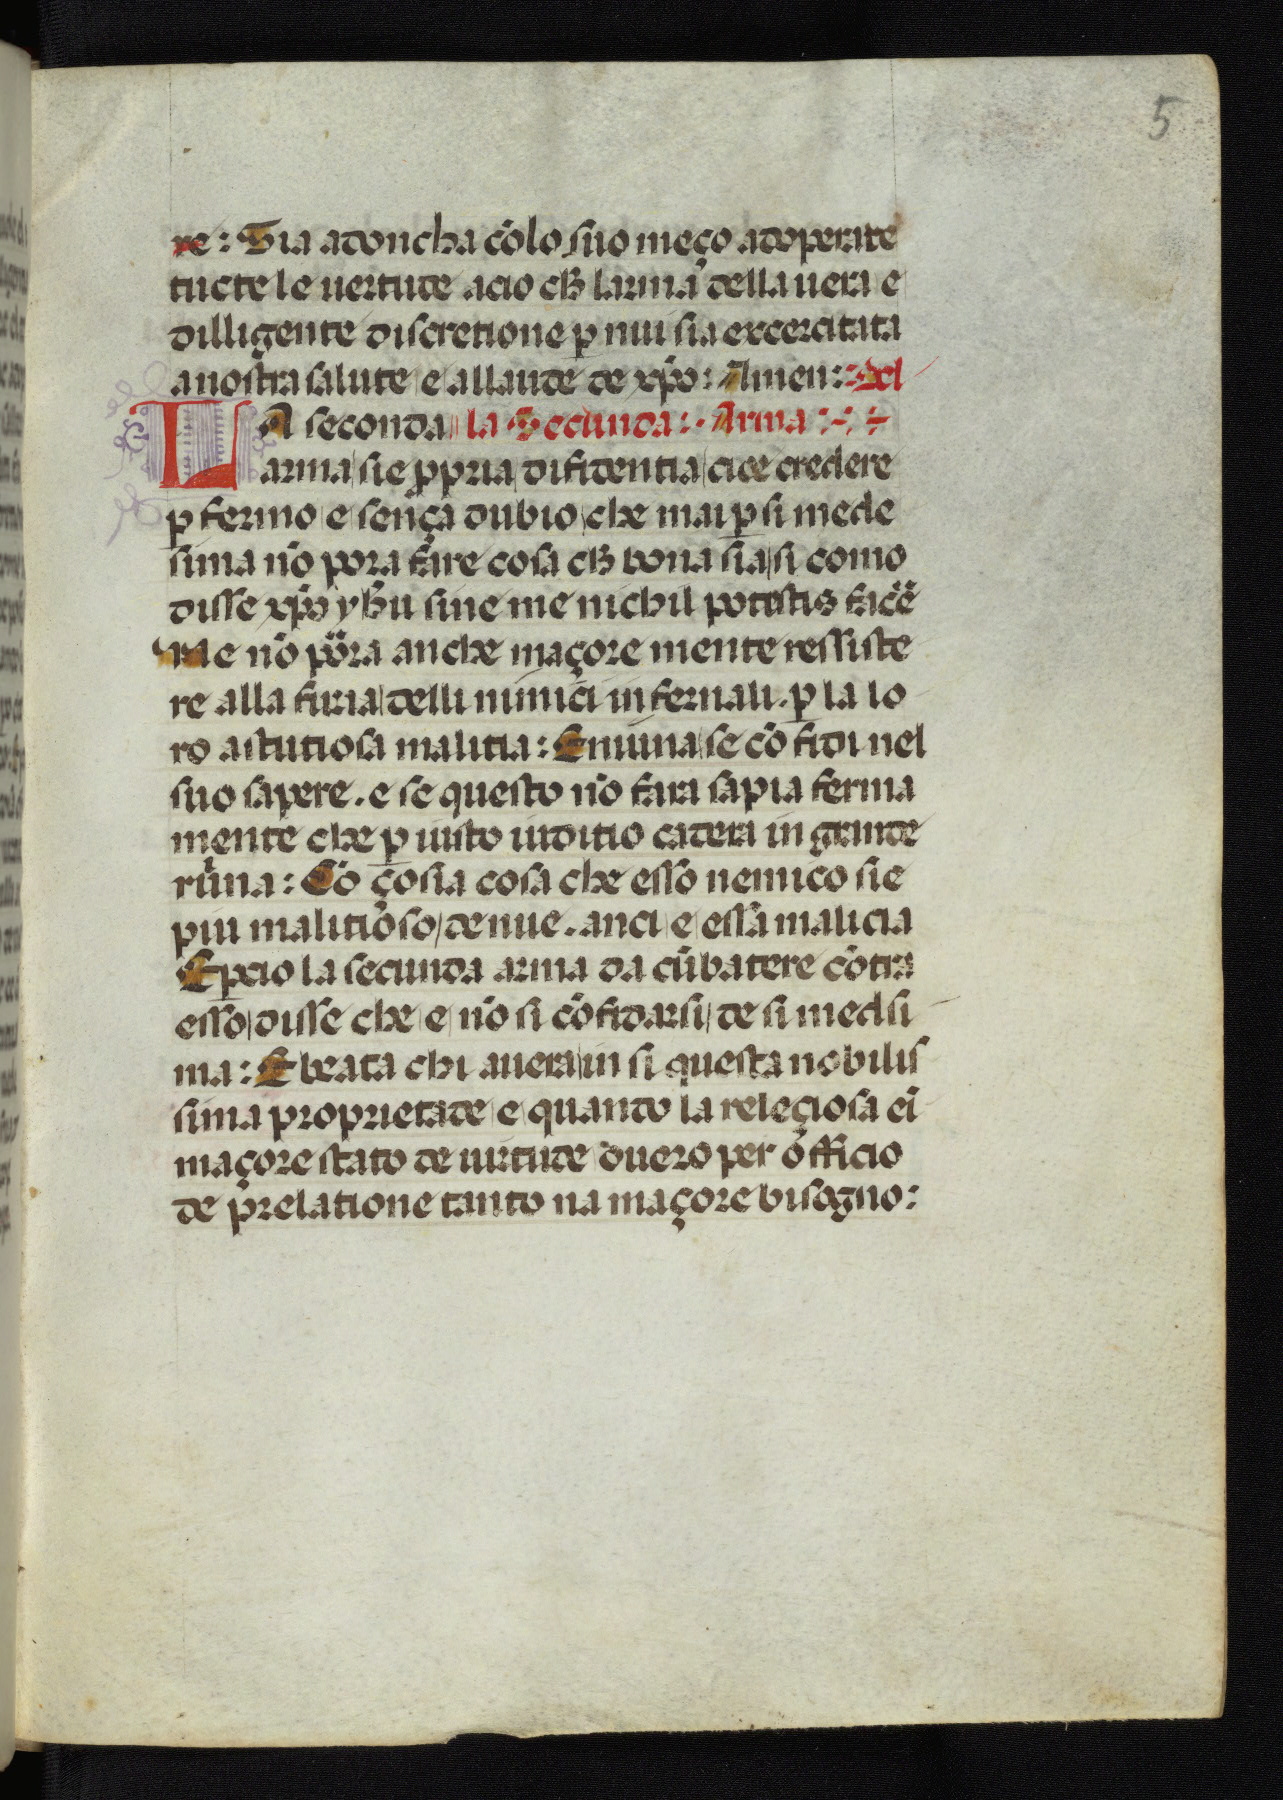 5
re: Sia adoncha cō lo suo meço adoperate
tucte le uertude acio cħ larma della uera e
dilligente discretione p̱ nui sia excercitata
a nostra salute e allaude de xp̄o: Amen: Del
LA seconda la Secunda: Arma:
arma sie p̱pria difidentia cioe credere
p̱ fermo e sença dubio che mai p̱ si mede
sima nō pora fare cosa cħ bona sia si como
disse xp̄o yħu sine me nichil potestis face
ne nō pora anche maçore mente ressiste
re alla furia delli nimici infernali. p̱ la lo
ro astutiosa malitia: E niuna se cōfidi nel
suo sapere. e se questo nō fara sapia ferma
mente che p̱ iusto iuditio cadera in grande
ruina: Cō ço sia cosa che esso nemico sie
piu malitioso de nue. anci e essa malicia
E p̱cio la secunda arma da cūbatere cōtra
esso disse che e nō si cōfidarsi de si medsi
ma: E beata chi auera in si questa nobilis
sima proprietade e quanto la releçiosa ei
maçore stato de uirtude ouero per officio
de prelatione tanto na maçore bisogno: